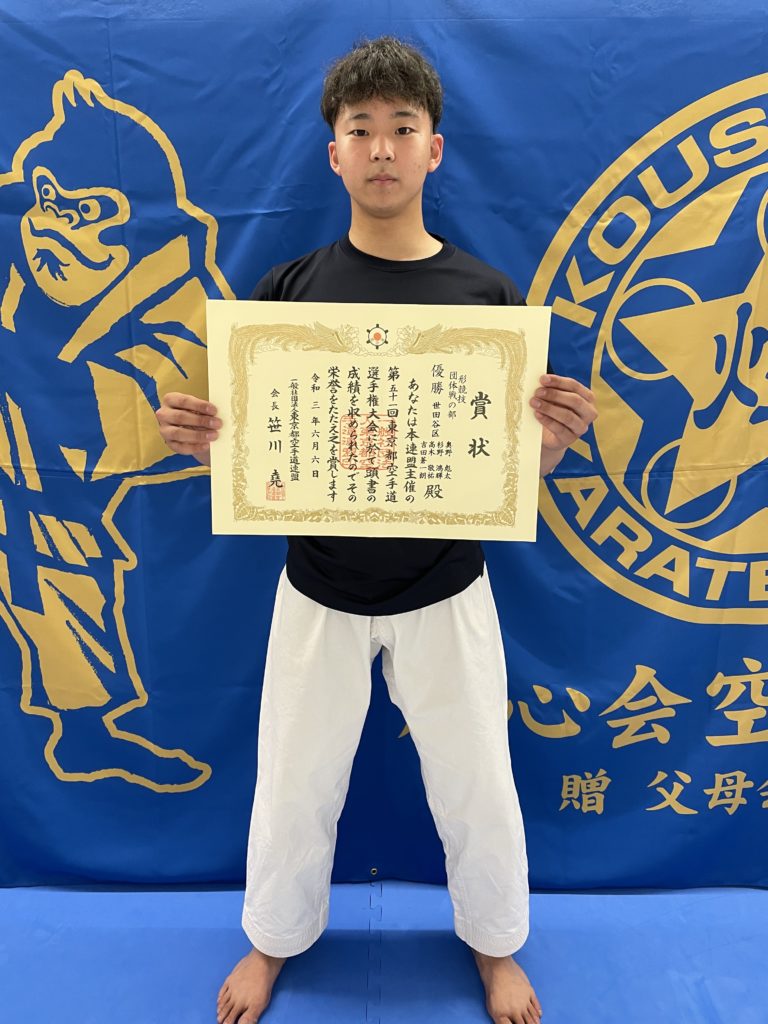 賞状
形競技
団体戦の部
優勝 世田谷区
奥野 彪太
杉野 鴻輝
高木 敬祐
吉田 蒼一朗
殿
あなたは本連盟主催の
第五十一回東京都空手道
選手権大会において頭書の
成績を収められたのでその
栄誉をたたえ之を賞します
令和 三年六月六日
一般社団法人東京都空手道連盟
会長 笹川 堯
KOUS
ARATE
心会空
贈 父母会